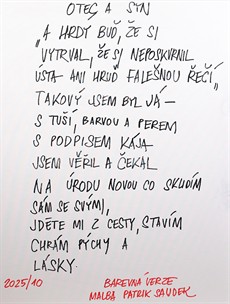 OTEC A SYN
„A HRDÝ BUĎ, ŽE SI
VYTRVAL, ŽE SI NEPOSKVRNIL
ÚSTA ANI HRUĎ FALEŠNOU ŘEČÍ"
TAKOVÝ JSEM BYL JÁ—
S TUŠÍ, BARVOU A PEREM
S PODPISEM KÁJA
JSEM VĚŘIL A ČEKAL
NA ÚRODU NOVOU CO SKLIDÍM
SÁM SE SVÝMI,
JDĚTE MI Z CESTY, STAVÍM
CHRÁM PÝCHY A
LÁSKY.
2025/10 BAREVNÁ VERZE
MALBA PATRIK SAUDEK